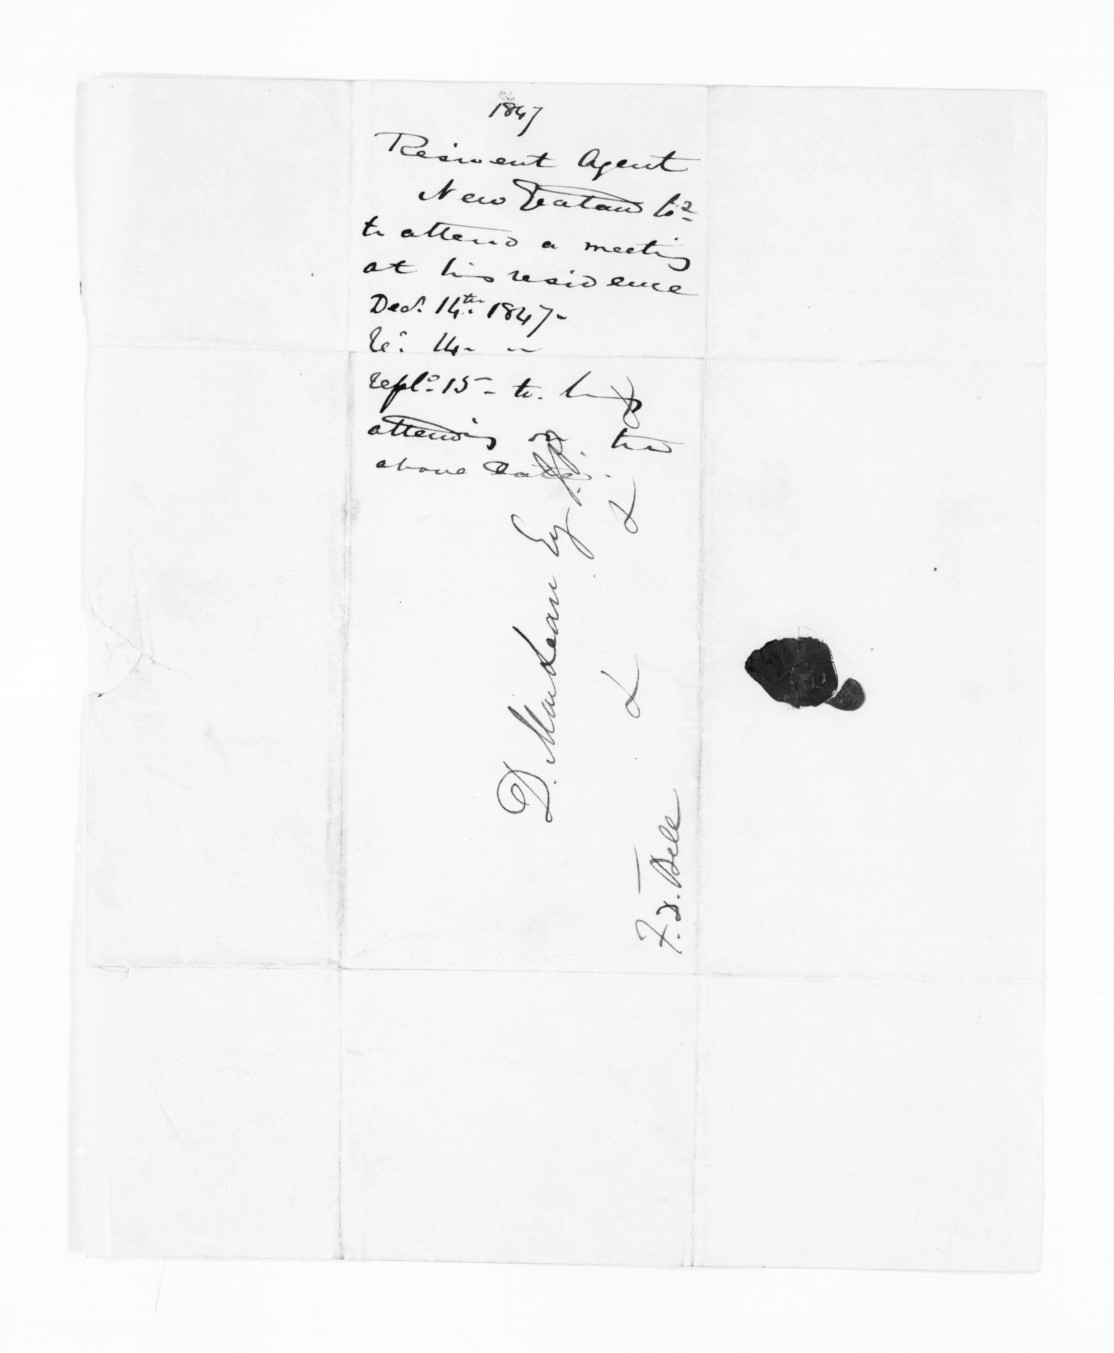 1847
Resident Agent
New Zealand Co.
to attend a meeting
at his residence
Decr. 14th. 1847-
Re: 14 - "
Repld. 15 - to his
attending on the
above date.
D. MacLean Esq J.P.
& & &
F. D. Bell